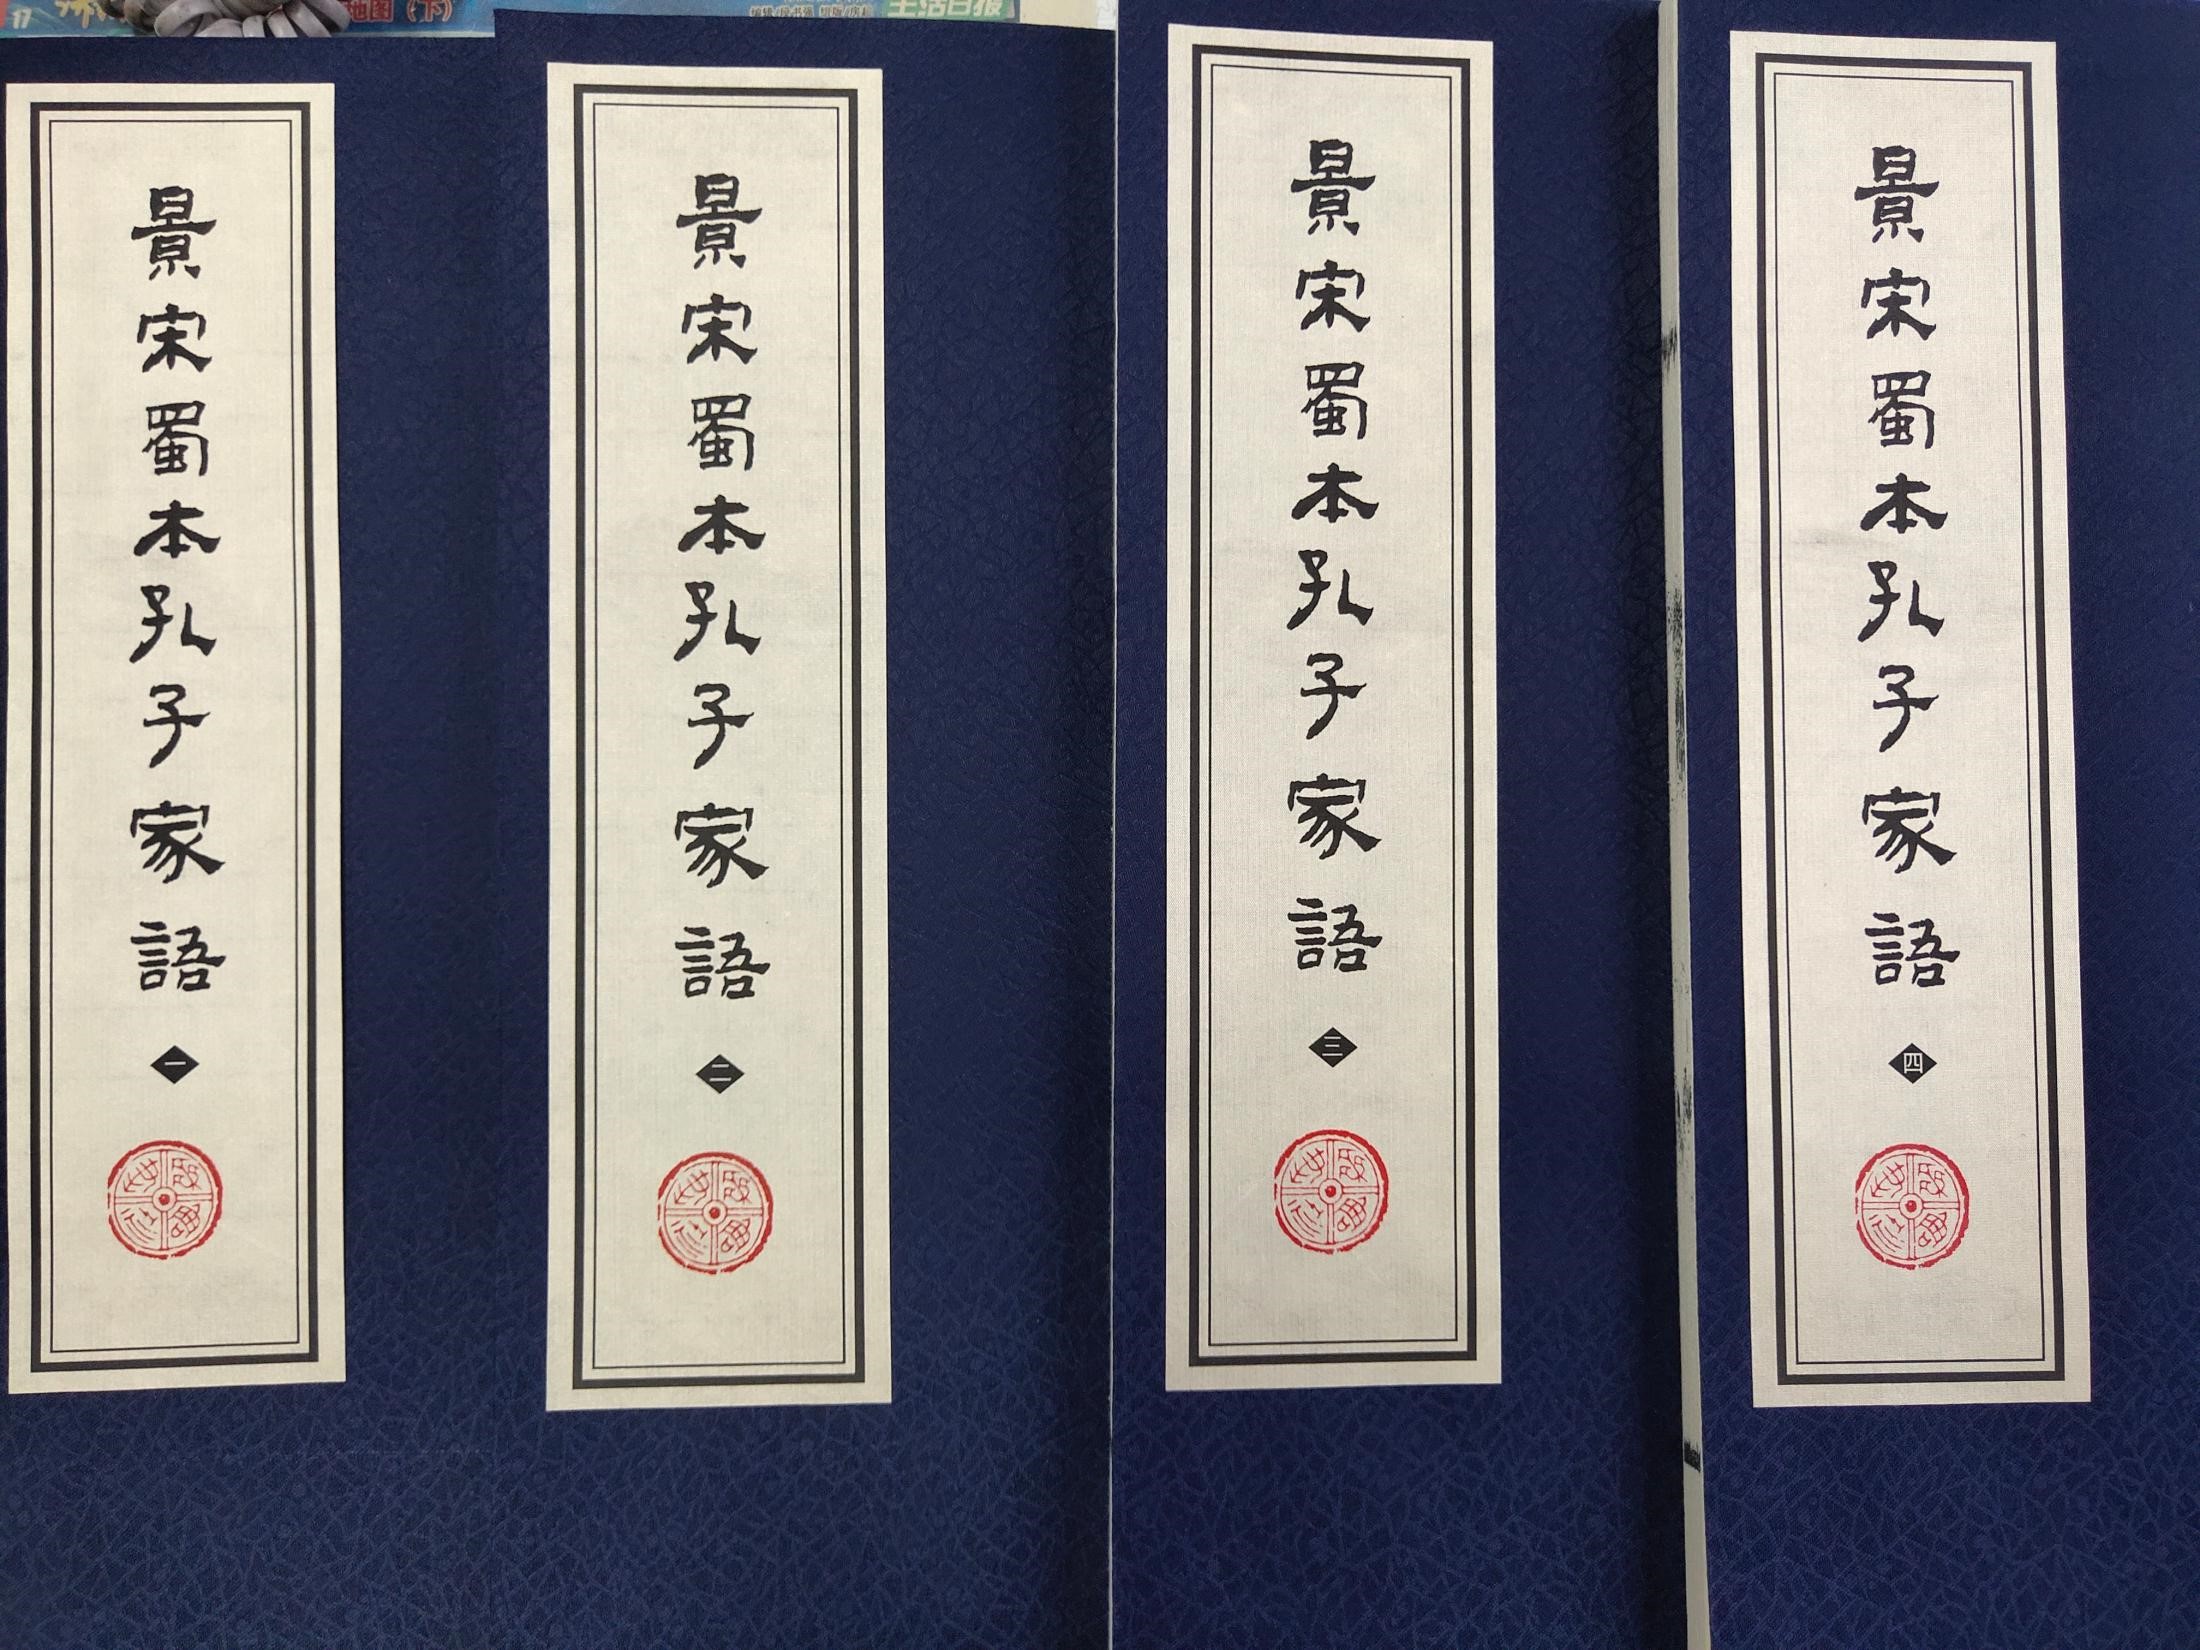 17
地图（下）
生活日报
景宋蜀本孔子家語
一
景宋蜀本孔子家語
二
景宋蜀本孔子家語
三
景宋蜀本孔子家語
四